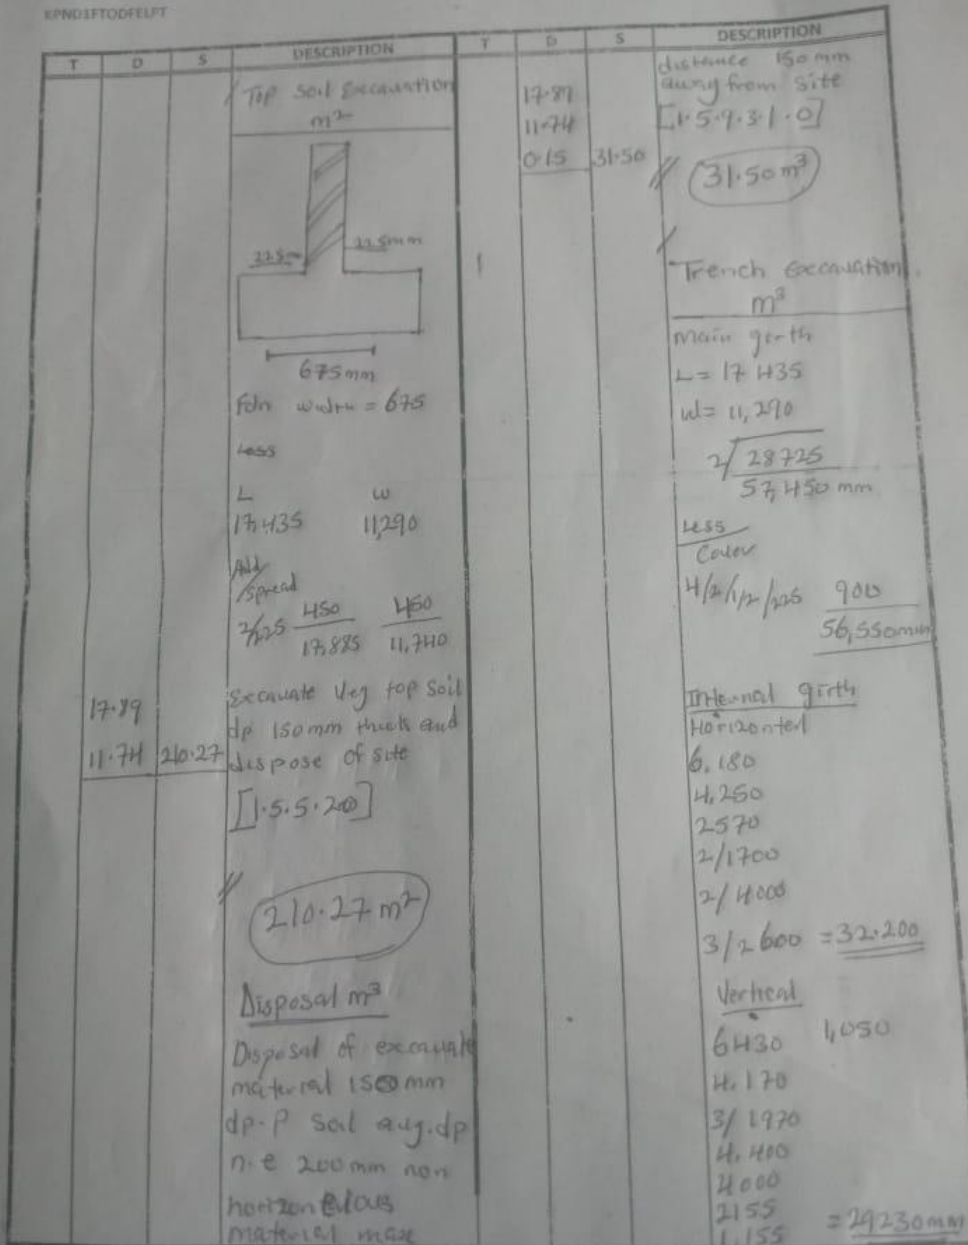 KPND3FTODFELFT
T D S DESCRIPTION
Top Soil Excavation
m²
225mm
225mm
675mm
Fdn width = 675
Less
L W
17,435 11,290
Add
/spread
2/225 450 450
17,885 11,740
17.89
11.74 210.27
Excavate Veg top Soil
dp 150mm thick and
dispose of site
[1.5.5.2.0]
210.27 m²
Disposal m³
Disposal of excavate
material 1500 mm
dp. P Soil avg. dp
n.e 200mm non
material max
T D S DESCRIPTION
distance 150 mm
away from Site
[1.5.9.3.1.0]
17.89
11.74
0.15 31.50
31.50 m³
Trench Excavation
m³
Main girth
L= 17 435
W= 11,290
2/ 28725
57,450 mm
Less
4/2/1/2/225 900
56,550mm
Internal girth
Horizontal
6,180
4,250
2570
2/1700
2/4000
3/2600 =32.200
Vertical
6430 1,050
4,170
3/ 1970
4,400
4000
2155
1,155 =29230mm